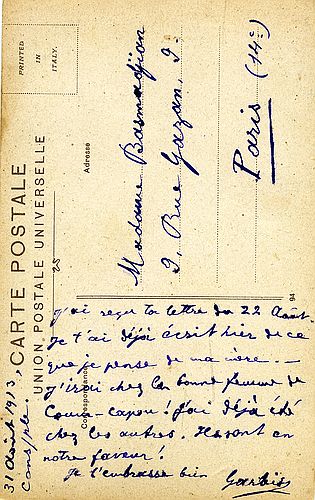 PRINTED
IN
ITALY.
CARTE POSTALE
UNION POSTALE UNIVERSELLE
Correspondance
Adresse
94
25
Madame Basmadjian
9, Rue Gazan, 9.
Paris (14e)
31 Août 1913,
Cons/ple.
J'ai reçu ta lettre du 22 Août.
Je t'ai déjà écrit hier de ce
que je pense de ma mère. —
J'irai chez la bonne femme de
Coum-Capou! J'ai déjà été
chez les autres. Ils sont en
notre faveur!
Je t'embrasse bien
Garbis